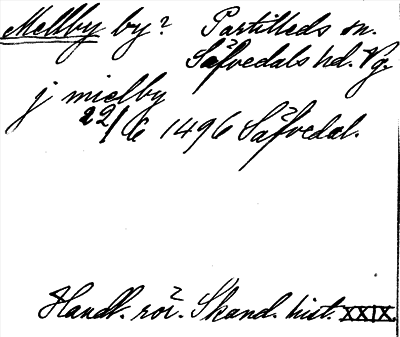 Mellby by? Partilleds sn.
Säfvedals hd. Vg.
j mielby
22/6 1496 Säfvedal.
Handl. rör. Skand. hist. XXIX.